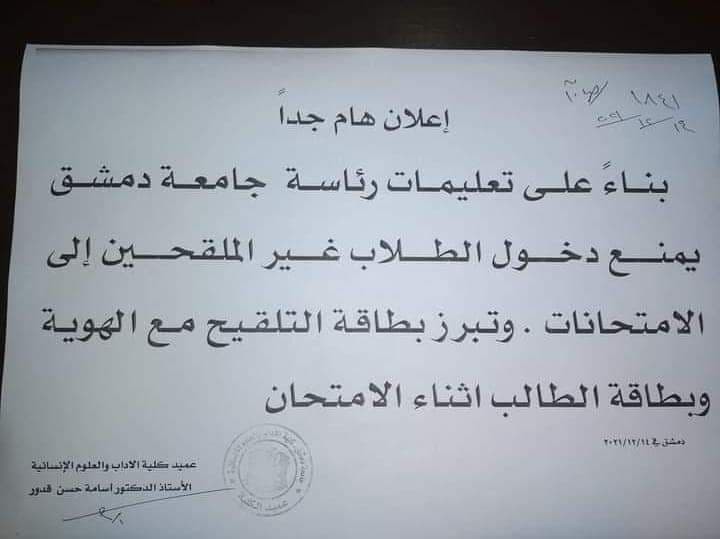 ١٨٤١ / ص.م
١٤ / ١٢ / ٢٠٢١
إعلان هام جداً
بناءً على تعليمات رئاسة جامعة دمشق
يمنع دخول الطلاب غير الملقحين إلى
الامتحانات . وتبرز بطاقة التلقيح مع الهوية
وبطاقة الطالب اثناء الامتحان
دمشق في ٢٠٢١/١٢/١٤
عميد كلية الاداب والعلوم الإنسانية
الأستاذ الدكتور اسامة حسن قدور
عميد الكلية